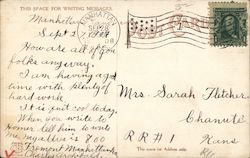 THIS SPACE FOR WRITING MESSAGES
Manhattan
Sept 2
How are all of you
folks anyway.
I am having a
time with plenty of
hard work.
It is quit cool today.
When you write to
Homer tell him to write
me
Fremont
MANHATTAN
Mrs. Sarah Fletcher
Chanute
R R # 1
Kans
This space for Address only.